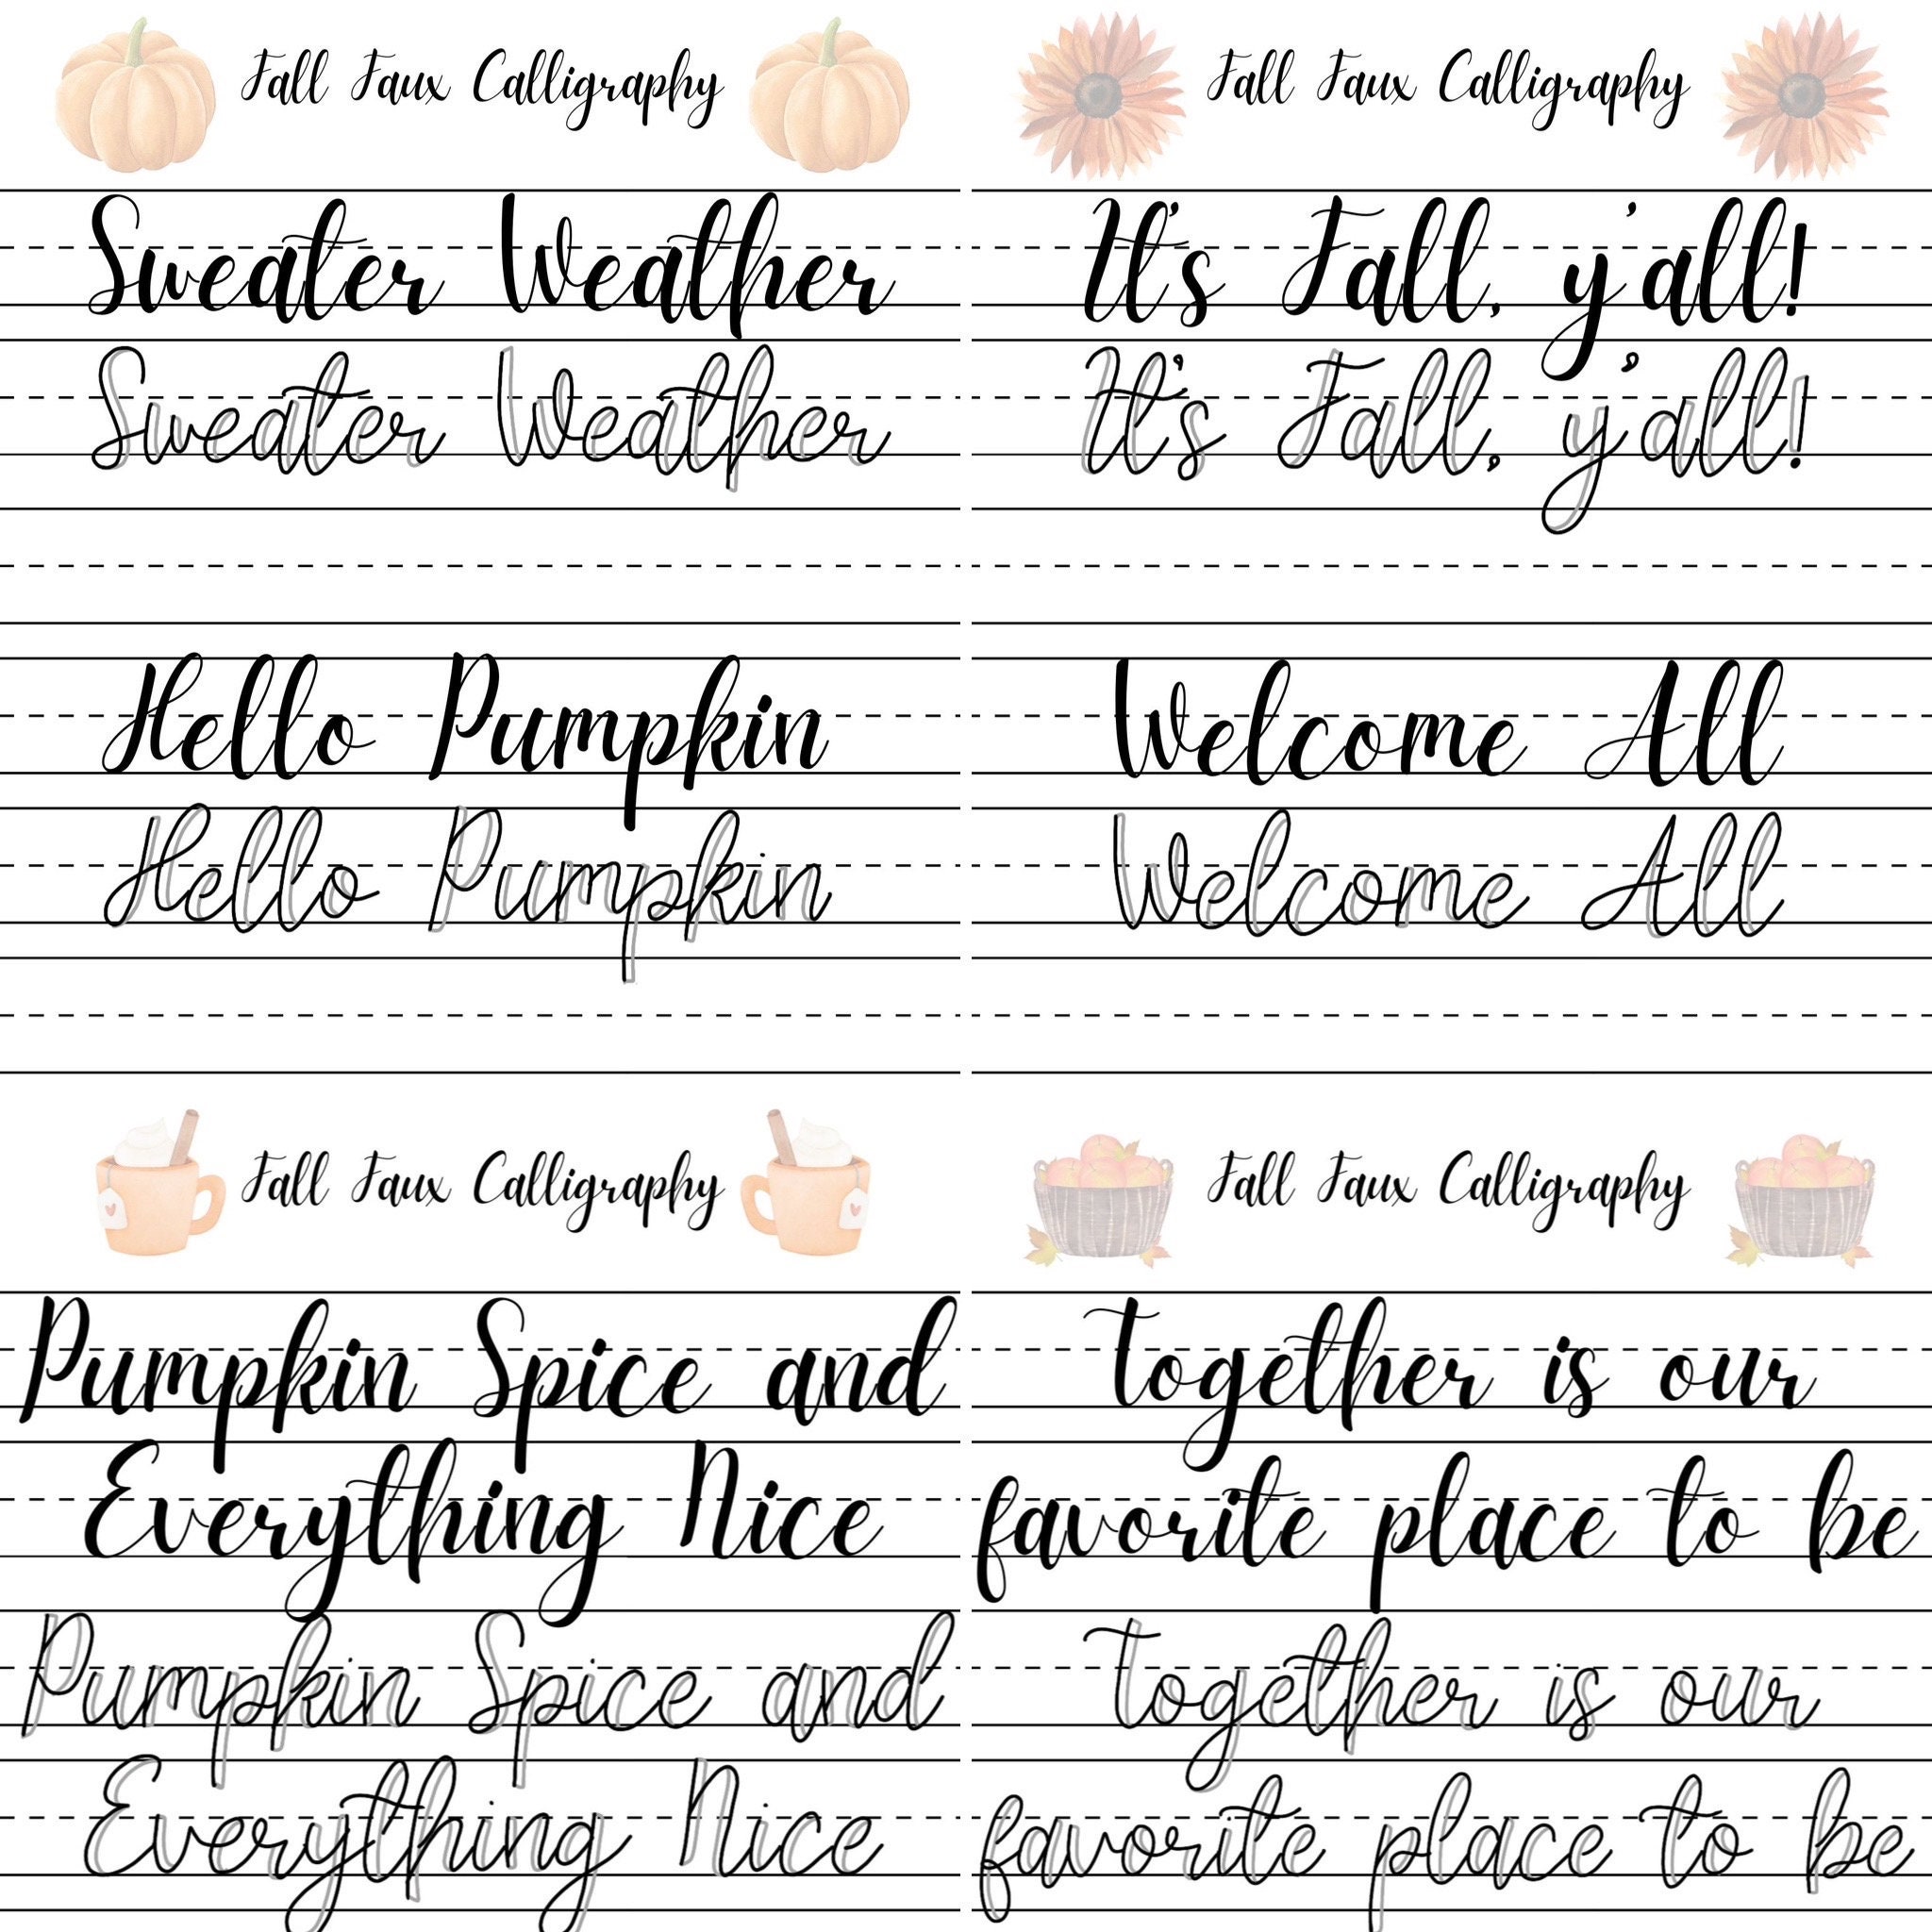 Fall Faux Calligraphy
Sweater Weather
Sweater Weather
Hello Pumpkin
Hello Pumpkin
Fall Faux Calligraphy
It's Fall, y'all!
It's Fall, y'all!
Welcome All
Welcome All
Fall Faux Calligraphy
Pumpkin Spice and
Everything Nice
Pumpkin Spice and
Everything Nice
Fall Faux Calligraphy
together is our
favorite place to be
together is our
favorite place to be